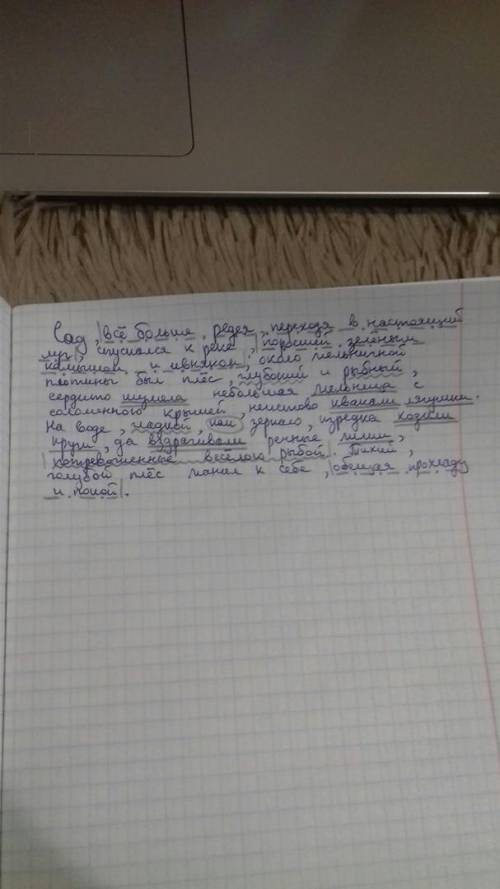 Сад, всё больше редея, переходя в настоящий
луг, спускался к реке, поросшей зеленым
камышом и ивняком, около мельничной
плотины был плёс, глубокий и рыбный,
сердито шумела небольшая мельница с
соломенною крышей, неистово квакали лягушки.
На воде, гладкой, как зеркало, изредка ходили
круги, да вздрагивали речные лилии,
потревоженные весёлою рыбой. Тихий,
голубой плёс манил к себе, обещая прохладу
и покой.